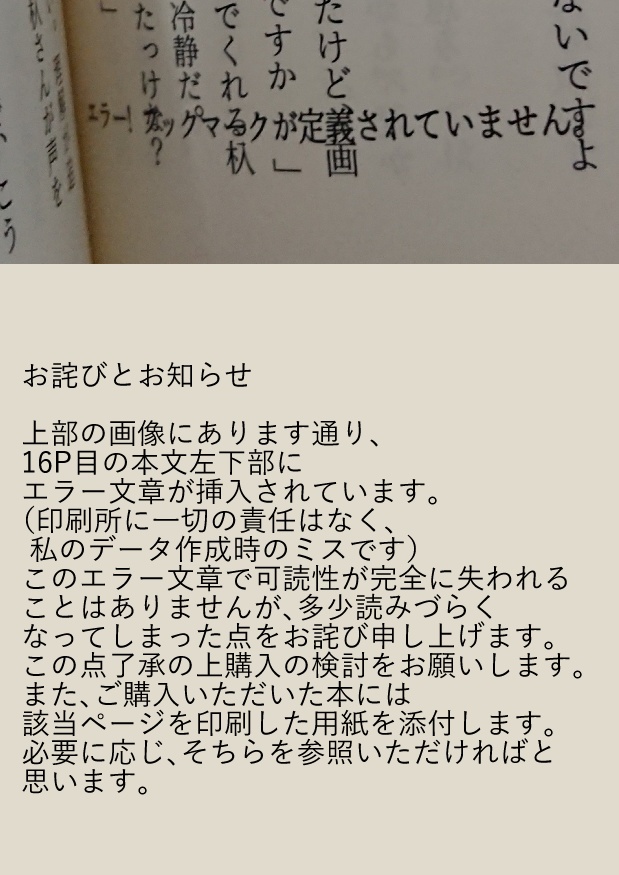 ないですよ
たけど、画
ですか」
でくれる杁
冷静だ
たっけな？
」
エラー! ブックマークが定義されていません。
杁さんが声を
こう
お詫びとお知らせ
上部の画像にあります通り、
16P目の本文左下部に
エラー文章が挿入されています。
(印刷所に一切の責任はなく、
私のデータ作成時のミスです)
このエラー文章で可読性が完全に失われる
ことはありませんが、多少読みづらく
なってしまった点をお詫び申し上げます。
この点了承の上購入の検討をお願いします。
また、ご購入いただいた本には
該当ページを印刷した用紙を添付します。
必要に応じ、そちらを参照いただければと
思います。